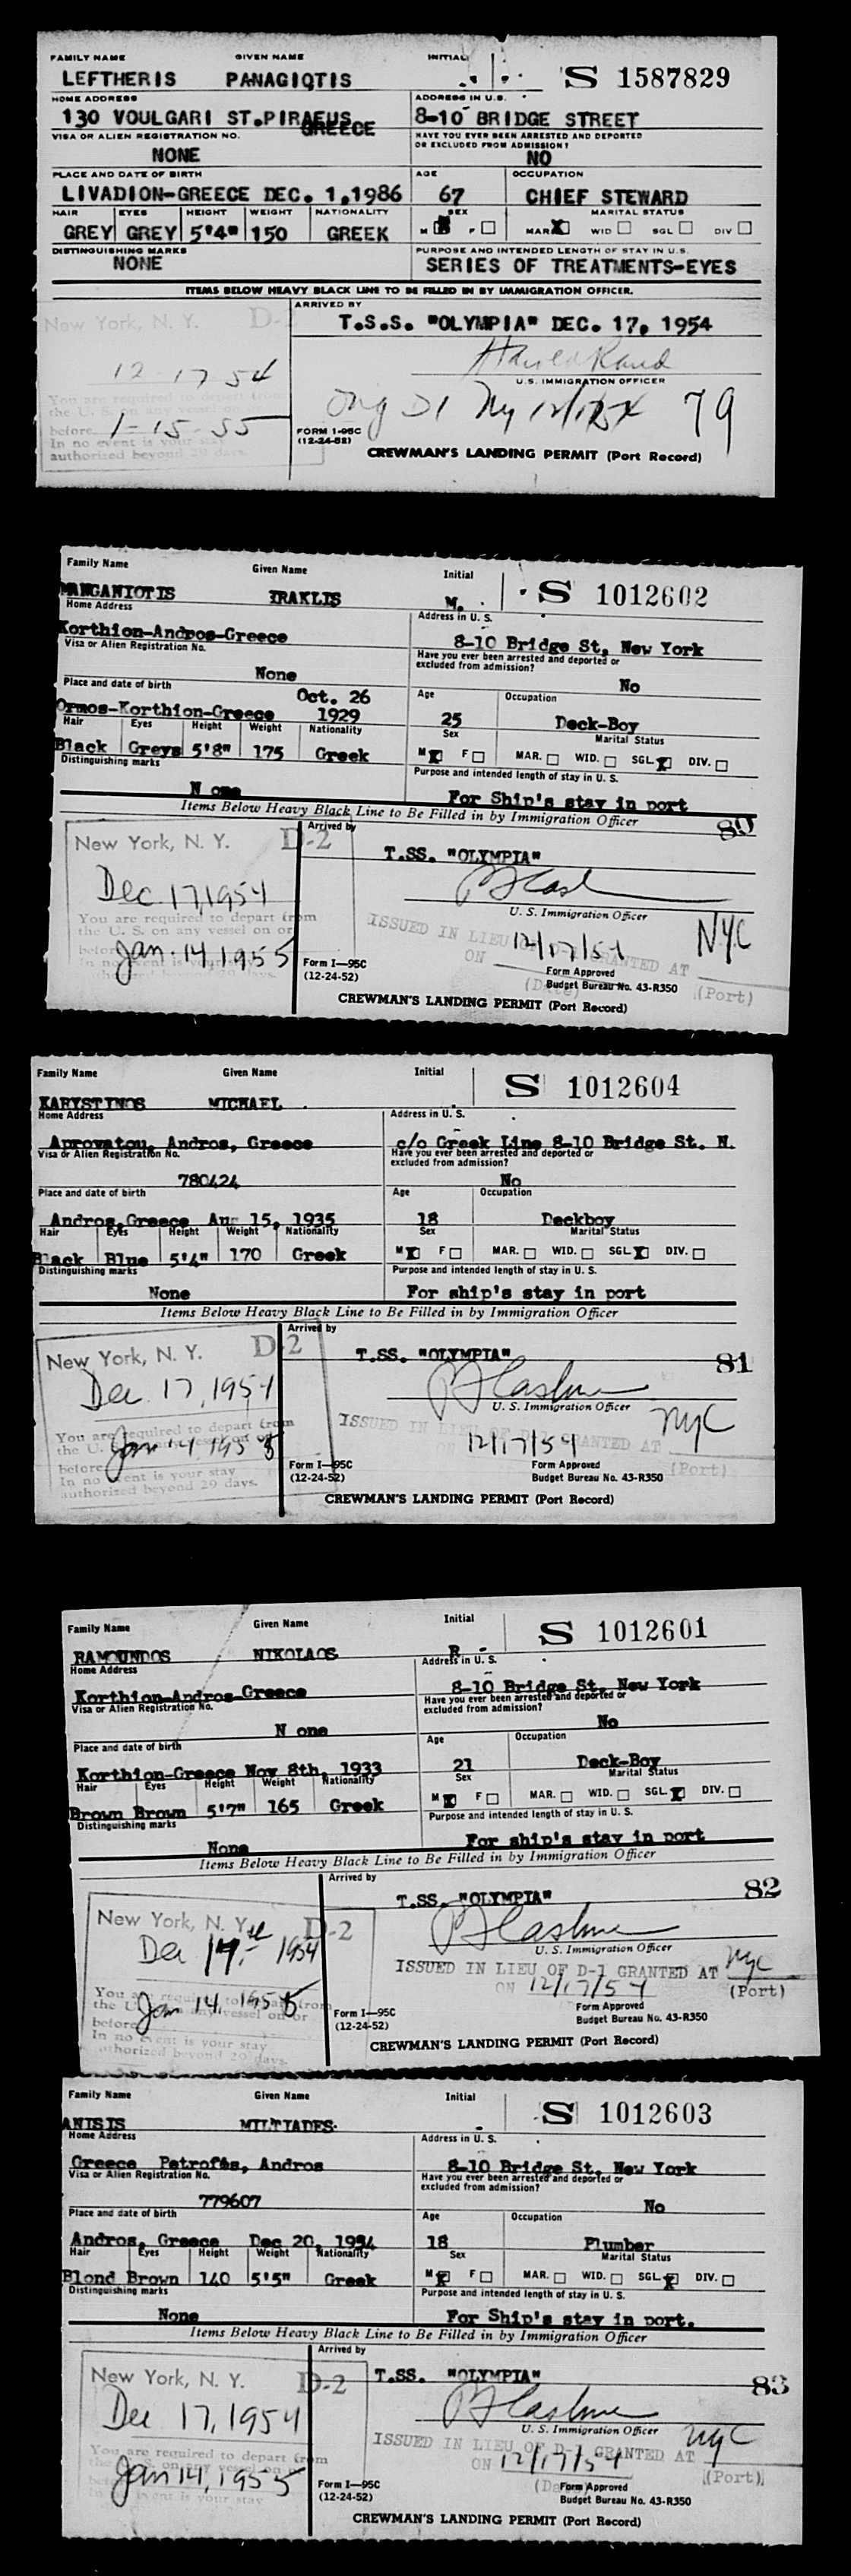 FAMILY NAME GIVEN NAME INITIAL
LEFTHERIS PANAGIOTIS S 1587829
HOME ADDRESS ADDRESS IN U.S.
130 VOULGARI ST.PIRAEUS 8-10 BRIDGE STREET
GREECE
VISA OR ALIEN REGISTRATION NO. HAVE YOU EVER BEEN ARRESTED AND DEPORTED
OR EXCLUDED FROM ADMISSION?
NONE NO
PLACE AND DATE OF BIRTH AGE OCCUPATION
LIVADION-GREECE DEC. 1,1986 67 CHIEF STEWARD
HAIR EYES HEIGHT WEIGHT NATIONALITY SEX MARITAL STATUS
GREY GREY 5'4" 150 GREEK M F MAR WID SGL DIV
DISTINGUISHING MARKS PURPOSE AND INTENDED LENGTH OF STAY IN U.S.
NONE SERIES OF TREATMENTS-EYES
ITEMS BELOW HEAVY BLACK LINE TO BE FILLED IN BY IMMIGRATION OFFICER.
ARRIVED BY
New York, N. Y. T.S.S. "OLYMPIA" DEC. 17, 1954
12-17 54
U.S. IMMIGRATION OFFICER
You are required to depart from
the U. S. on any vessel on or
before 1-15-55
In no event is your stay
authorized beyond 29 days.
79
FORM I-95C
(12-24-52)
CREWMAN'S LANDING PERMIT (Port Record)
Family Name Given Name Initial
MANGANIOTIS IRAKLIS M. S 1012602
Home Address Address in U. S.
Korthion-Andros-Greece 8-10 Bridge St, New York
Visa or Alien Registration No. Have you ever been arrested and deported or
excluded from admission?
None No
Place and date of birth Age Occupation
Oct. 26
Ormos-Korthion-Greece 1929 25 Deck-Boy
Hair Eyes Height Weight Nationality Sex Marital Status
Black Greys 5'8" 175 Greek M F MAR. WID. SGL. DIV.
Distinguishing marks Purpose and intended length of stay in U. S.
N one For Ship's stay in port
Items Below Heavy Black Line to Be Filled in by Immigration Officer
80
Arrived by
New York, N. Y. D-2 T.SS. "OLYMPIA"
Dec 17, 1954
U. S. Immigration Officer
You are required to depart from
the U. S. on any vessel on or
before Jan. 14, 1955
ISSUED IN LIEU GRANTED AT NYC
ON 12/17/54 (Port)
Form I—95C
(12-24-52)
Form Approved
Budget Bureau No. 43-R350
CREWMAN'S LANDING PERMIT (Port Record)
Family Name Given Name Initial
KARYSTINOS MICHAEL S 1012604
Home Address Address in U. S.
Aprovatou, Andros, Greece c/o Greek Line 8-10 Bridge St. N.
Visa or Alien Registration No. Have you ever been arrested and deported or
excluded from admission?
780424 No
Place and date of birth Age Occupation
Andros,Greece Aug 15, 1935 18 Deckboy
Hair Eyes Height Weight Nationality Sex Marital Status
Black Blue 5'4" 170 Greek M F MAR. WID. SGL. DIV.
Distinguishing marks Purpose and intended length of stay in U. S.
None For ship's stay in port
Items Below Heavy Black Line to Be Filled in by Immigration Officer
Arrived by
New York, N. Y. D-2 T.SS. "OLYMPIA" 81
Dec 17, 1954
U. S. Immigration Officer
You are required to depart from
the U. S. on any vessel on or
before Jan 14, 1955
In no event is your stay
authorized beyond 29 days.
ISSUED IN LIEU OF D-1 GRANTED AT NYC
ON 12/17/54 (Port)
Form I—95C
(12-24-52)
Form Approved
Budget Bureau No. 43-R350
CREWMAN'S LANDING PERMIT (Port Record)
Family Name Given Name Initial
RAMOUNDOS NIKOLAOS R. S 1012601
Home Address Address in U. S.
Korthion-Andros-Greece 8-10 Bridge St, New York
Visa or Alien Registration No. Have you ever been arrested and deported or
excluded from admission?
N one No
Place and date of birth Age Occupation
Korthion-Greece Nov 8th, 1933 21 Deck-Boy
Hair Eyes Height Weight Nationality Sex Marital Status
Brown Brown 5'7" 165 Greek M F MAR. WID. SGL. DIV.
Distinguishing marks Purpose and intended length of stay in U. S.
None For ship's stay in port
Items Below Heavy Black Line to Be Filled in by Immigration Officer
Arrived by
New York, N. Y. D-2 T.SS. "OLYMPIA" 82
Dec 17th 1954
U. S. Immigration Officer
ISSUED IN LIEU OF D-1 GRANTED AT NYC
ON 12/17/54 (Port)
You are required to depart from
the U. S. on any vessel on or
before Jan 14, 1955
In no event is your stay
authorized beyond 29 days.
Form I—95C
(12-24-52)
Form Approved
Budget Bureau No. 43-R350
CREWMAN'S LANDING PERMIT (Port Record)
Family Name Given Name Initial
ANISIS MILTIADES. S 1012603
Home Address Address in U. S.
Greece Petrofos, Andros 8-10 Bridge St, New York
Visa or Alien Registration No. Have you ever been arrested and deported or
excluded from admission?
779607 No
Place and date of birth Age Occupation
Andros, Greece Dec 20, 1934 18 Plumber
Hair Eyes Height Weight Nationality Sex Marital Status
Blond Brown 140 5'5" Greek M F MAR. WID. SGL. DIV.
Distinguishing marks Purpose and intended length of stay in U. S.
None For Ship's stay in port.
Items Below Heavy Black Line to Be Filled in by Immigration Officer
Arrived by
New York, N. Y. D-2 T.SS. "OLYMPIA" 83
Dec 17, 1954
U. S. Immigration Officer
ISSUED IN LIEU OF D-1 GRANTED AT NYC
ON 12/17/54 (Port)
You are required to depart from
the U. S. on any vessel on or
before Jan 14, 1955
In no event is your stay
Form I—95C
(12-24-52)
Form Approved
Budget Bureau No. 43-R350
CREWMAN'S LANDING PERMIT (Port Record)